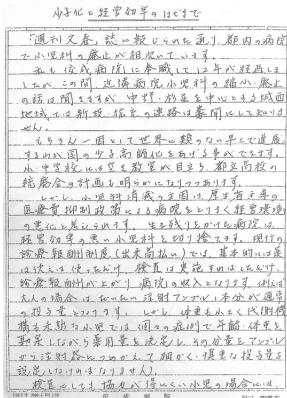 少子化と経営効率のはざまで
「週刊文春」誌に報じられた通り都内の病院
で小児科の廃止が相次いでいます。
私も佼成病院に奉職して12年が経過しま
したが、この間、近隣病院小児科の縮小、廃止
の話は聞きますが、中野・杉並を中心とする城西
地域では新設・拡充の連絡は寡聞にして知りま
せん。
もちろん一因として世界に類のない早さで進展
するわが国の少子高齢化をあげる事ができます。
小・中学校には空き教室が目立ち、都立高校の
統廃合の計画も明らかになりつつあります。
しかし、小児科消滅の主因は、厚生省主導の
医療費抑制政策による病院をとりまく経営環境
の悪化と考えられます。生き残りをかけた病院は
経営効率の悪い小児科を切り捨てます。現行の
診療報酬制度(出来高払い)では、基本的には薬
は使えば使っただけ、検査は実施すればしただけ
診療報酬が上がり病院の収入となります。例えば
大人の場合は、だいたい注射アンプル1本分が通常
の投与量となります。しかし、体重も小さく代謝機
構も未熟な小児では、個々の症例で年齢・体重を
勘案しながら薬用量を決定し、その分量をアンプル
から注射器につめかえて細かく、慎重な投与量を
設定しなければなりません。
検査にしても協力が得にくい小児の場合には、